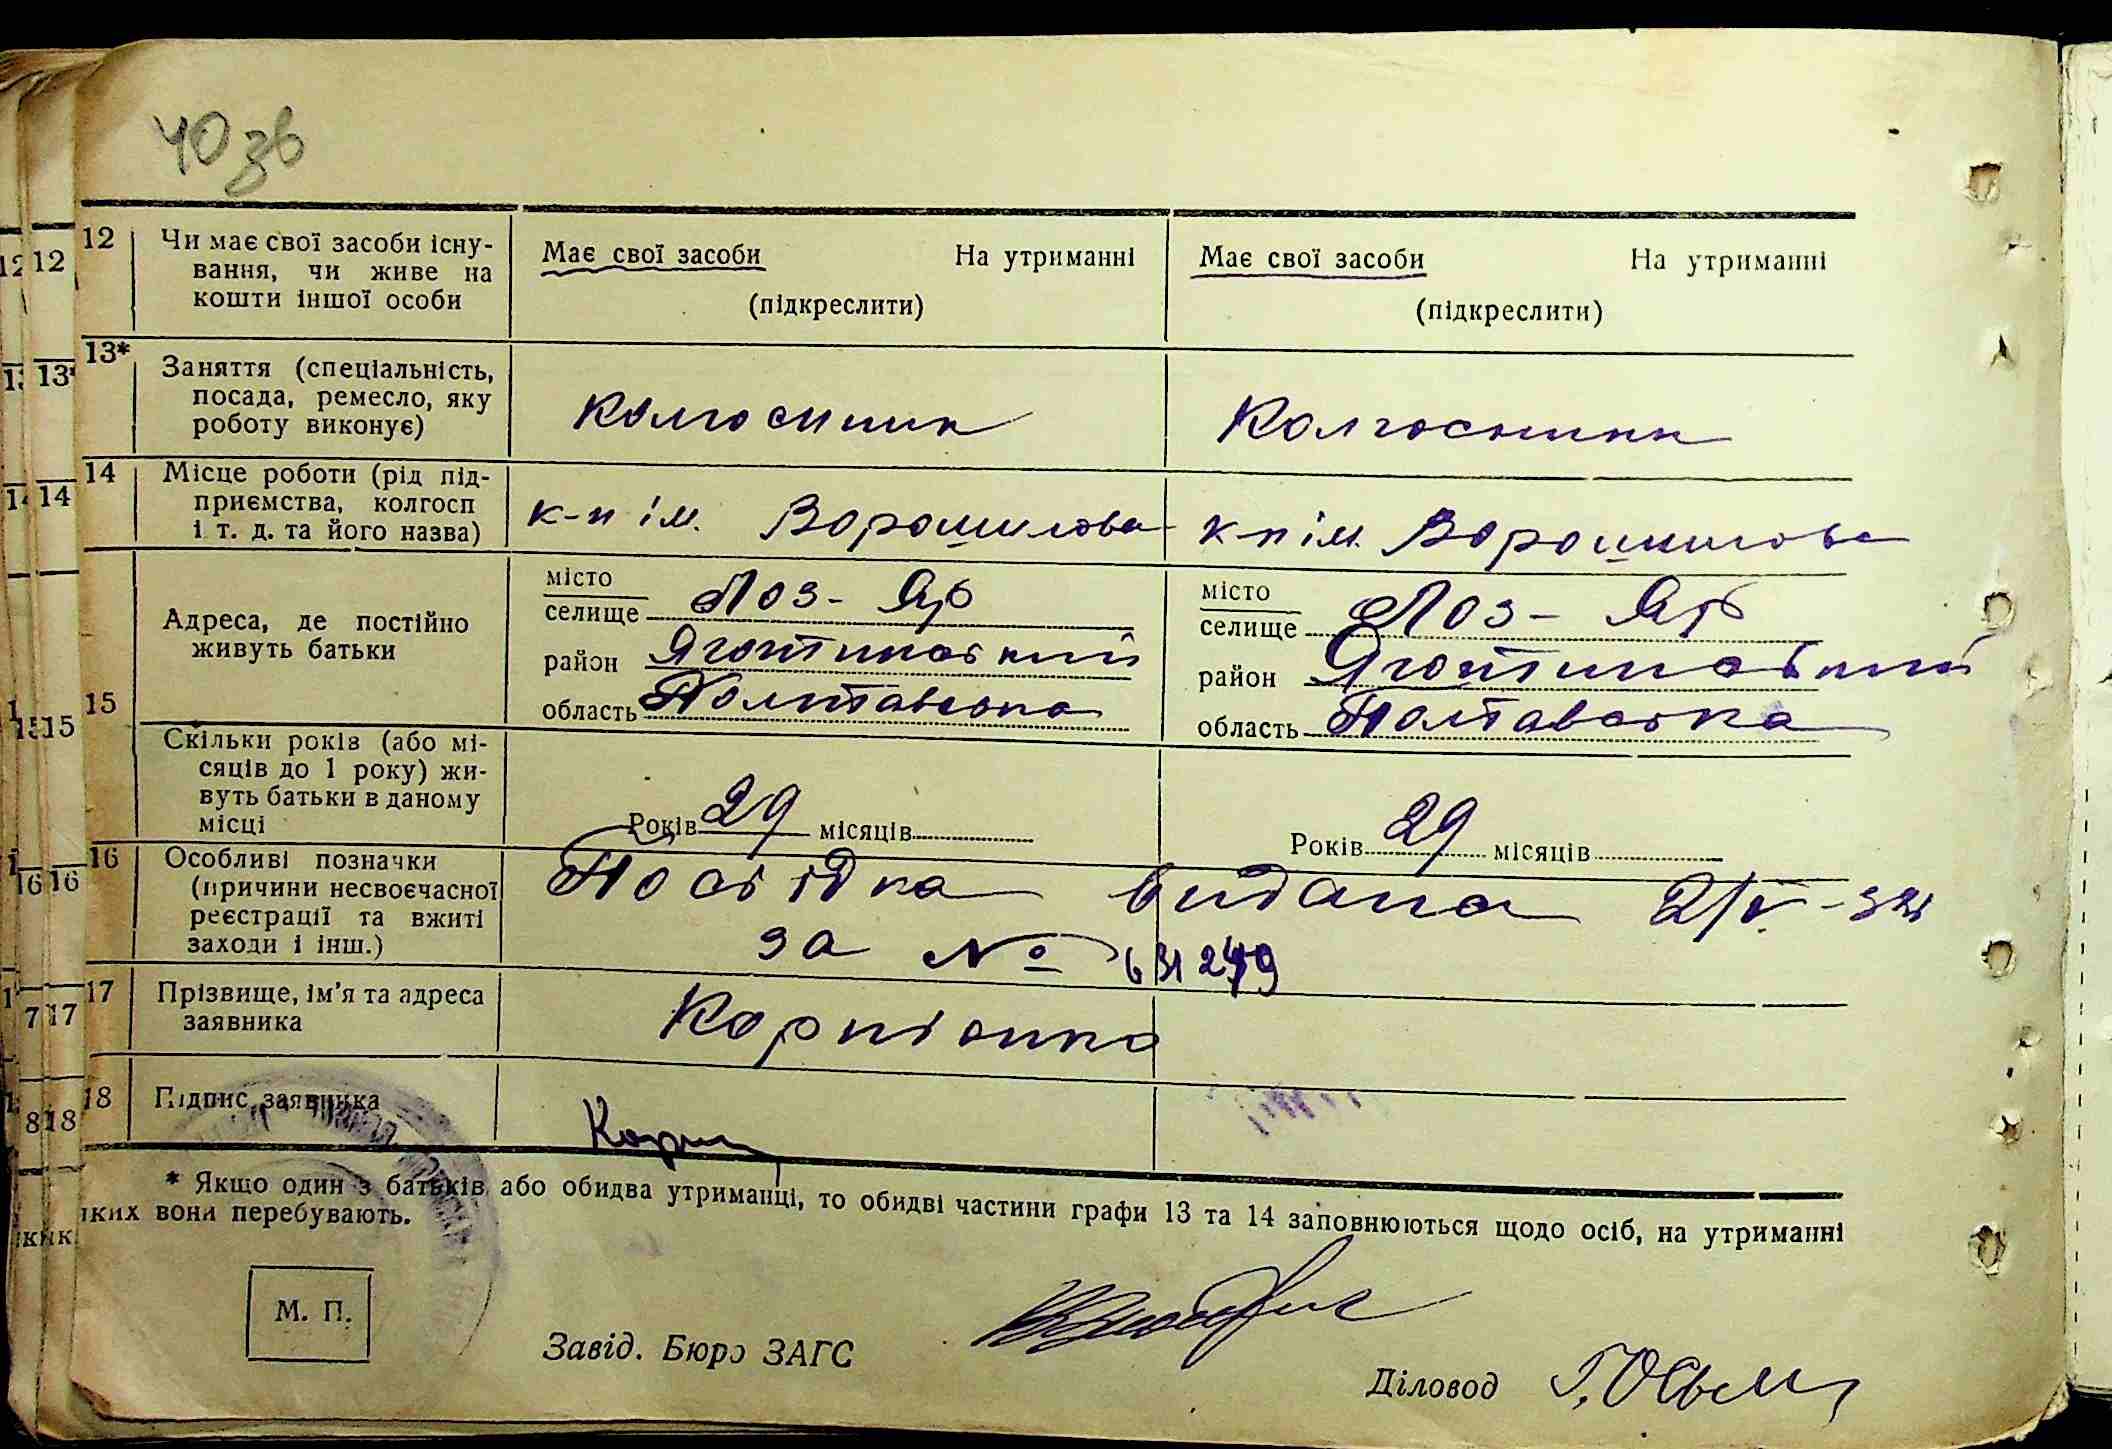 40 зв
12 Чи має свої засоби існу-
вання, чи живе на
кошти іншої особи
Має свої засоби На утриманні
(підкреслити)
Має свої засоби На утриманні
(підкреслити)
13* Заняття (спеціальність,
посада, ремесло, яку
роботу виконує)
Колгоспник
Колгоспник
14 Місце роботи (рід під-
приємства, колгосп
і т. д. та його назва)
к-п ім. Ворошилова
к-п ім. Ворошилова
15 Адреса, де постійно
живуть батьки
місто
селище Лоз-Яр
район Яготинський
область Полтавська
місто
селище Лоз-Яр
район Яготинський
область Полтавська
Скільки років (або мі-
сяців до 1 року) жи-
вуть батьки в даному
місці
Років 29 місяців
Років 29 місяців
16 Особливі позначки
(причини несвоєчасної
реєстрації та вжиті
заходи і інш.)
Посвідка видана 2/V-
за №
17 Прізвище, ім'я та адреса
заявника
Корпієнко
18 Підпис заявника
* Якщо один з батьків або обидва утриманці, то обидві частини графи 13 та 14 заповнюються щодо осіб, на утриманні
яких вони перебувають.
М. П.
Завід. Бюро ЗАГС
Діловод
12 12
13 13*
14 14
15 15
16 16
17 17
18 18